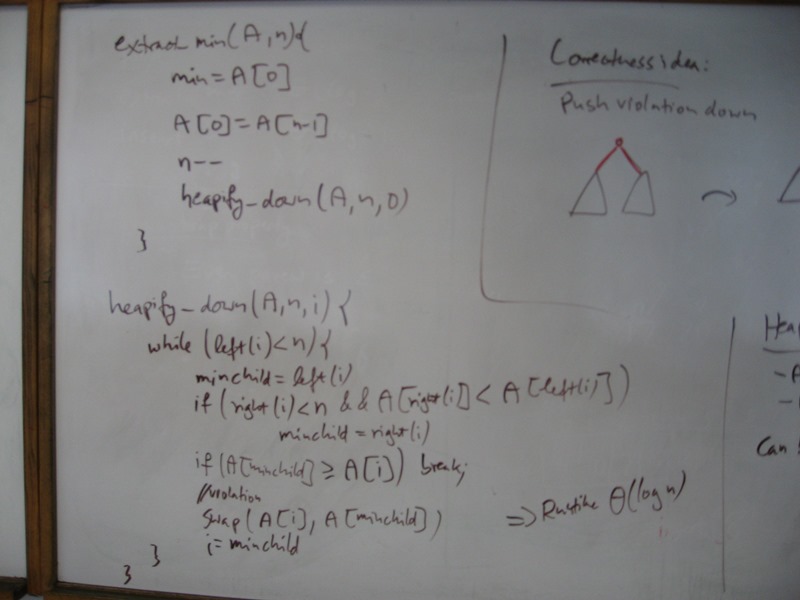 extract min(A,n){
min=A[0]
A[0]=A[n-1]
n--
heapify-down(A,n,0)
}
heapify-down(A,n,i){
while (left(i)<n){
minchild=left(i)
if(right(i)<n && A[right(i]<A[left(i)])
minchild=right(i)
if(A[minchild]≥A[i]) break;
//violation
Swap(A[i], A[minchild])
i=minchild
}
}
⇒ Runtime Θ(log n)
Correctness idea:
Push violation down
Hea
-A
-
Can